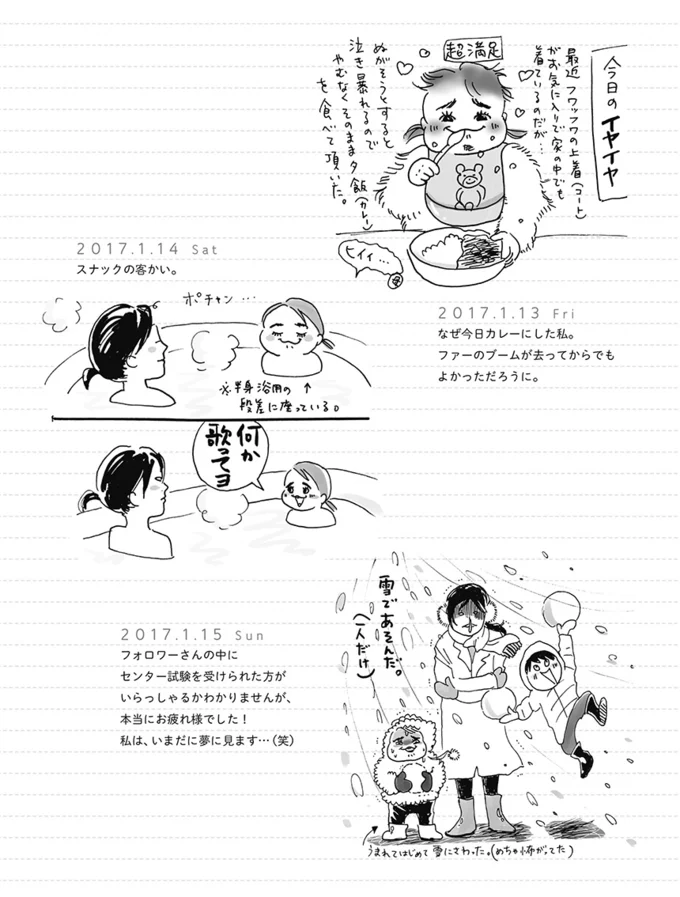 今日のイヤイヤ
最近フワッフワの上着(コート)
がお気に入りで家の中でも
着ているのだが…
超満足
ぬがそうとすると
泣き暴れるので
やむなくそのまま夕飯(カレー)
を食べて頂いた。
ヒイィ…
2017.1.13 Fri
なぜ今日カレーにした私。
ファーのブームが去ってからでも
よかっただろうに。
2017.1.14 Sat
スナックの客かい。
ポチャン…
※半身浴用の↑
段差に座っている。
何か
歌ってヨ
2017.1.15 Sun
フォロワーさんの中に
センター試験を受けられた方が
いらっしゃるかわかりませんが、
本当にお疲れ様でした!
私は、いまだに夢に見ます…(笑)
雪であそんだ。
(一人だけ)
うまれてはじめて雪にさわった。(めちゃ怖がってた)